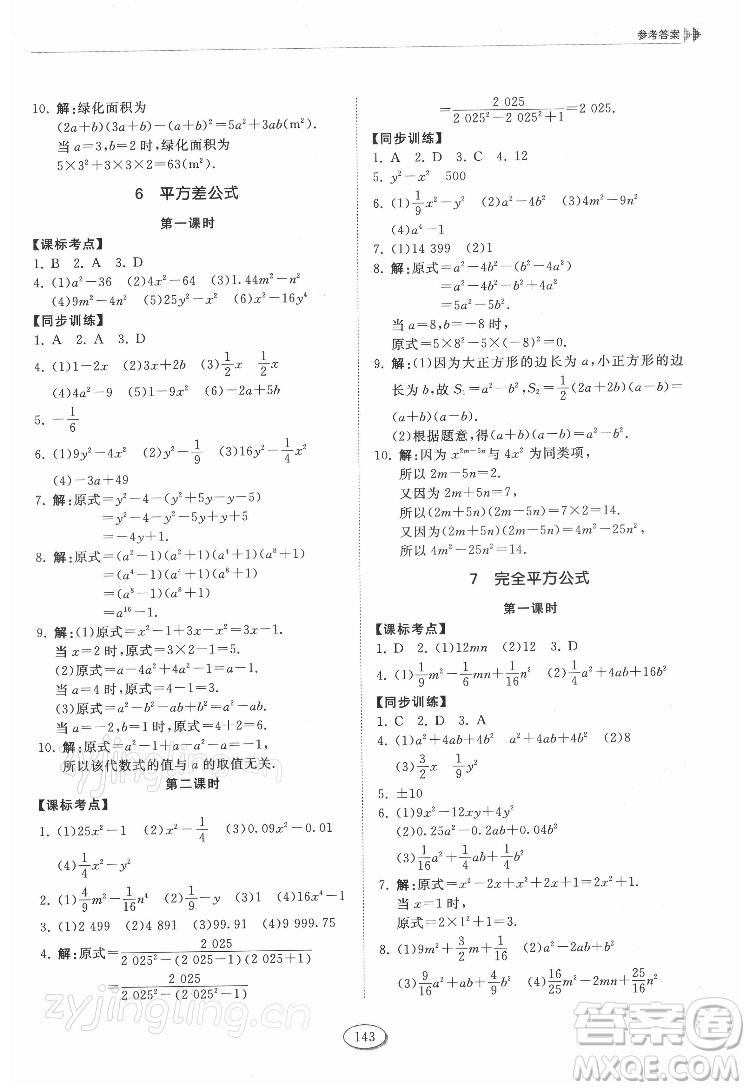 参考答案
10. 解:绿化面积为
(2a+b)(3a+b)-(a+b)²=5a²+3ab(m²).
当 a=3,b=2 时,绿化面积为
5×3²+3×3×2=63(m²).
6 平方差公式
第一课时
【课标考点】
1. B 2. A 3. D
4. (1)a²-36 (2)4x²-64 (3)1.44m²-n²
(4)9m²-4n² (5)25y²-x² (6)x²-16y⁴
【同步训练】
1. A 2. A 3. D
4. (1)1-2x (2)3x+2b (3)1/2 1/2x
(4)4a²-9 (5)1-9x² (6)-2a+5b
5. -1/6
6. (1)9y²-4x² (2)9y²-4x² (3)-1/4x²+y²
(4)-3a+49
7. 解:原式=y²-4-(y²+5y-y-5)
=y²-4-y²-5y+y+5
=-4y+1.
8. 解:原式=(a²-1)(a²+1)(a⁴+1)(a⁸+1)
=(a⁴-1)(a⁴+1)(a⁸+1)
=(a⁸-1)(a⁸+1)
=a¹⁶-1.
9. 解:(1)原式=x²-1+3x-x²=3x-1.
当 x=2 时,原式=3×2-1=5.
(2)原式=a-4a²+4a²-1=a-1.
当 a=4 时,原式=4-1=3.
(3)原式=a²-b²-a²+2b²=b²-ab.
当 a=-2,b=1 时,原式=4+2=6.
10. 解:原式=9-a²+a²=9,
所以该代数式的值与 a 的取值无关.
第二课时
【课标考点】
1. (1)25x²-1 (2)x²-1/4 (3)0.09x²-0.01
(4)1/4x²-y²
2. (1)4/9m²-1/16n⁴ (2)4/9 (3)1 (4)1
3. (1)2 499 (2)4 891 (3)99.91 (4)9 999.75
4. 解:原式=2 025/2 025²-(2 025-1)(2 025+1)
=2 025/2 025²-(2 025²-1)
=2 025/2 025²-2 025²+1=2 025.
【同步训练】
1. A 2. D 3. C 4. 12
5. y²-x² 500
6. (1)1/9x²-y² (2)a²-4b² (3)4m²-9n²
(4)a⁴-1
7. (1)14 399 (2)1
8. 解:原式=a²-4b²-(a²-ab-4a²+4ab)
=a²-4b²-a²+ab+4a²-4ab
=5a²-2b².
当 a=8,b=-8 时,
原式=5×8²-5×(-8)²=0.
9. 解:(1)因为大正方形的边长为 a,小正方形的边
长为 b,故 S₁=a²-b²,S₂=1/2(2a+2b)(a-b)=
(a+b)(a-b).
(2)根据题意,得(a+b)(a-b)=a²-b².
10. 解:因为 x²ᵐ⁻⁵ⁿ 与 4x² 为同类项,
所以 2m-5n=2.
又因为 2m+5n=7,
所以(2m+5n)(2m-5n)=7×2=14.
又因为(2m+5n)(2m-5n)=4m²-25n²,
所以 4m²-25n²=14.
7 完全平方公式
第一课时
【课标考点】
1. D 2. D 3. (1)12mn (2)9n²
4. (1)1/9m²-4/9mn+4/9n² (2)1/4a²+4ab+16b²
【同步训练】
1. C 2. D 3. A
4. (1)a²+4ab+4b² a²-4ab+4b² (2)8
(3)3/2x 1/9y²
5. ±10
6. (1)9x²-12xy+4y²
(2)0.25a²-0.2ab+0.04b²
(3)1/16a²+1/4ab+1/4b²
7. 解:原式=x²-2x+1+x²+2x=2x²+1.
当 x=1 时,
原式=2×1²+1=3.
8. (1)9m²+3/2m+1/16 (2)4a²-4ab+b²
(3)9/16a²-ab+4/9b² (4)16/25m²-2mn+25/16n²
143
答案卷
MXQE.COM
zyjingling.com